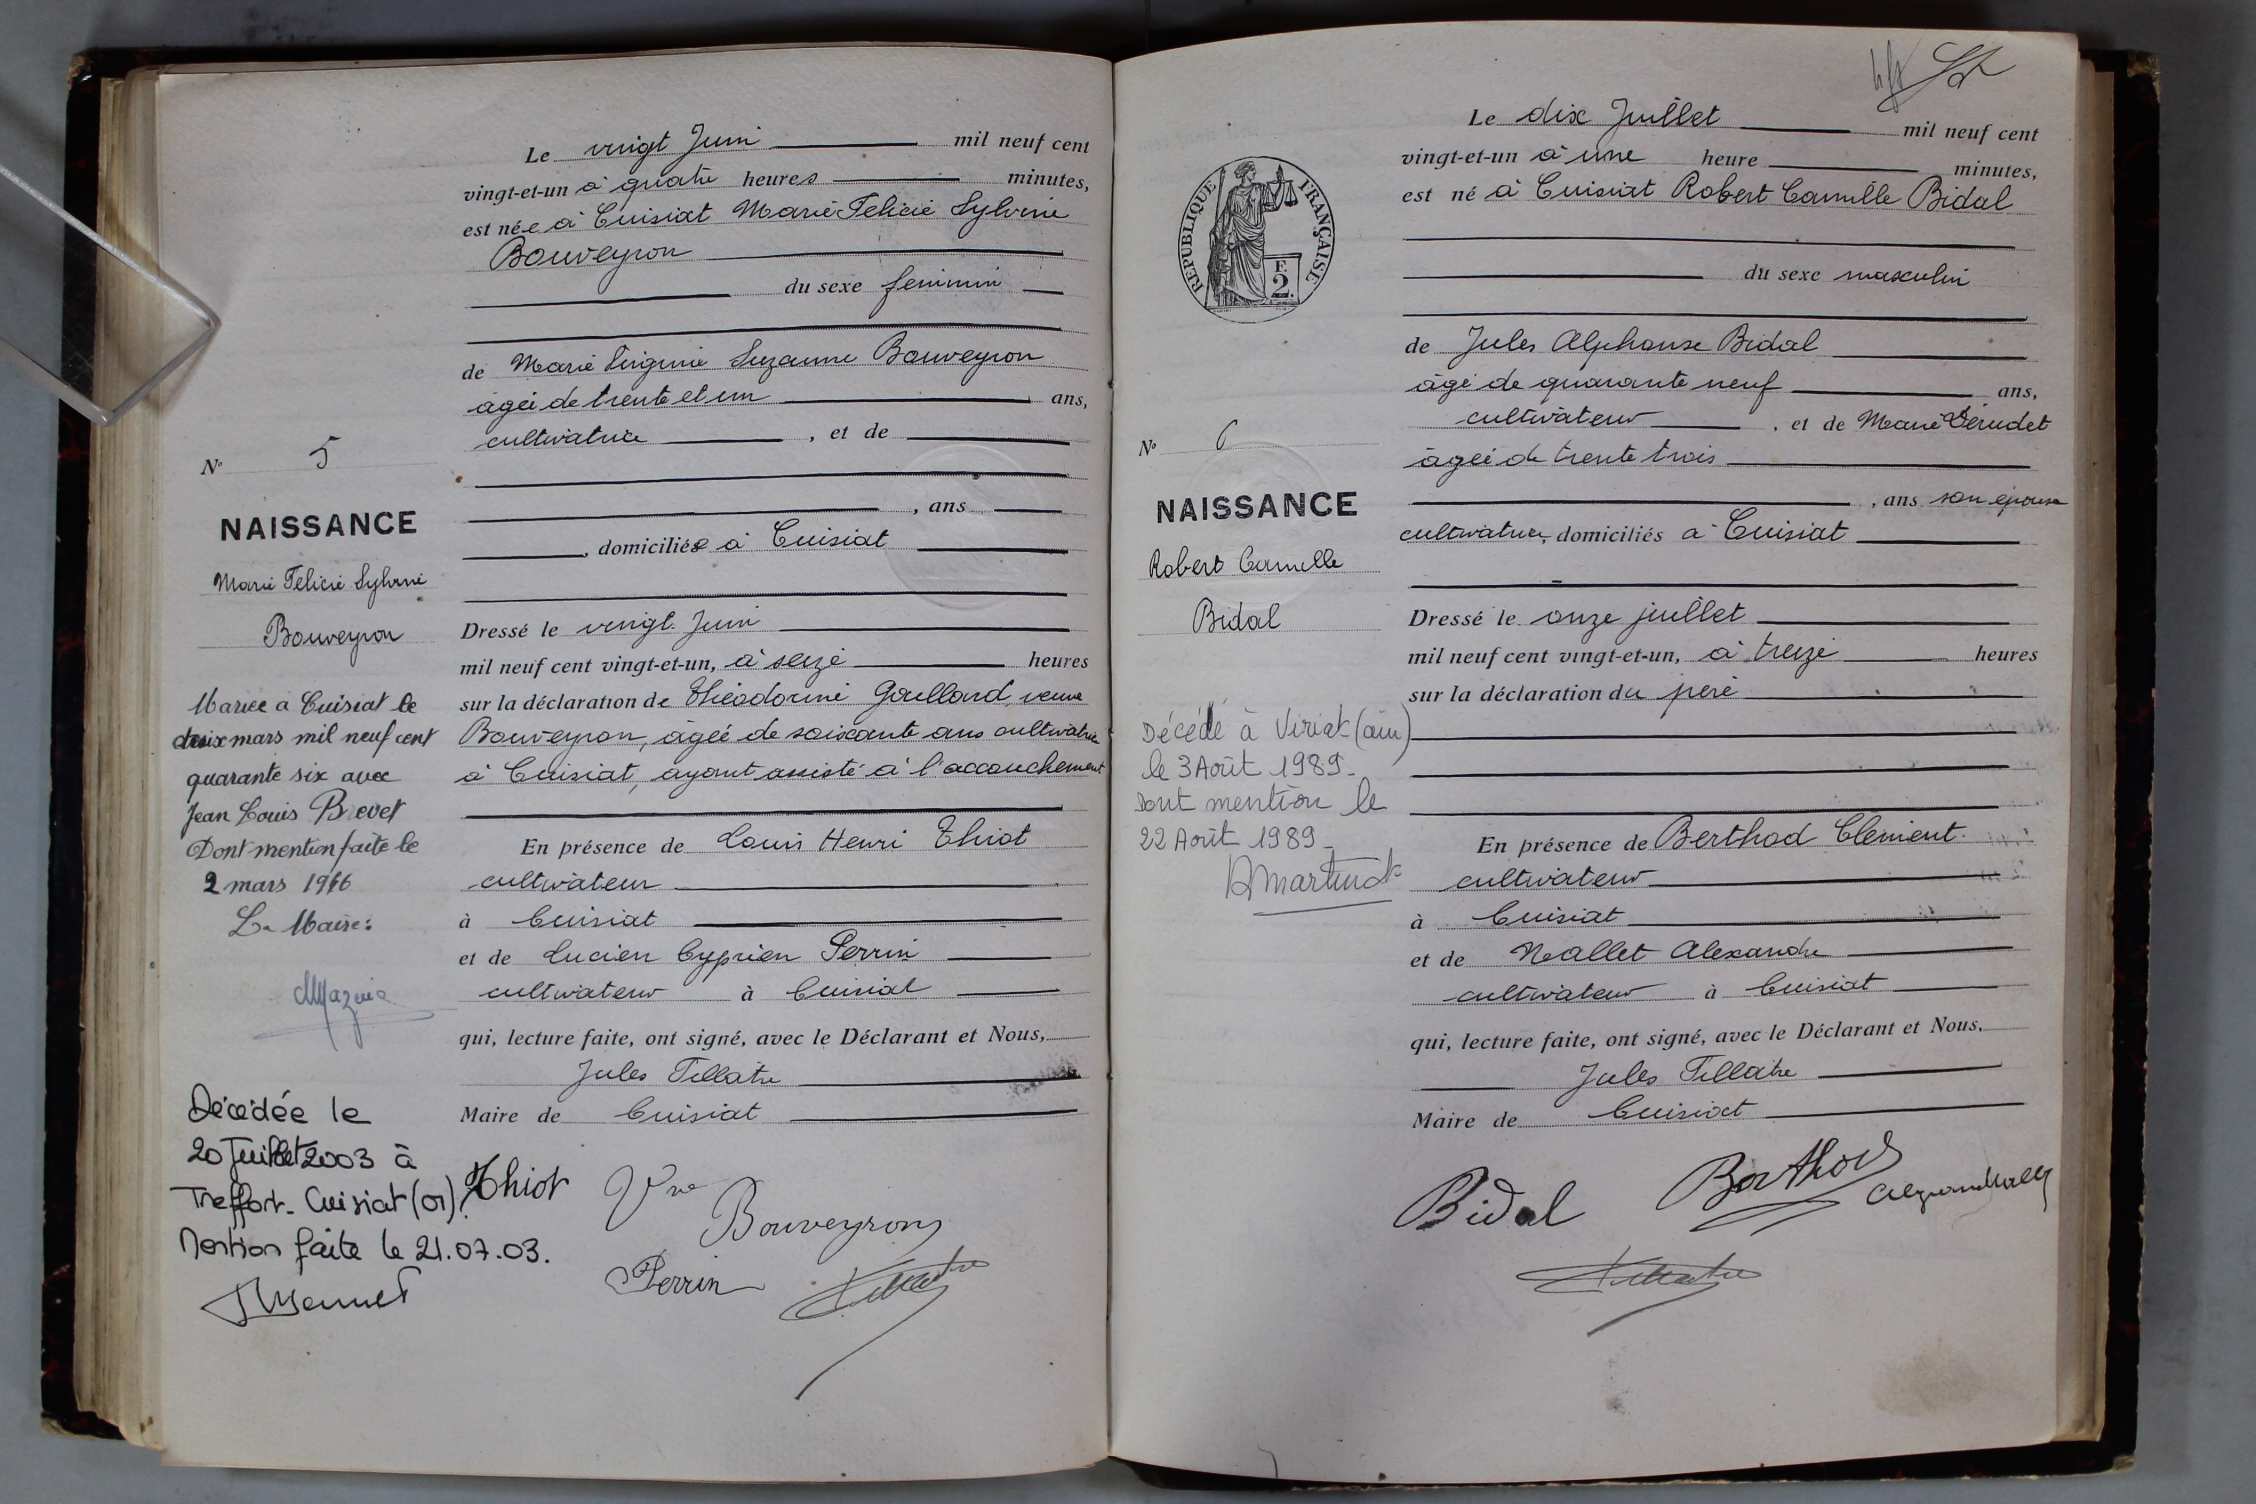 Le vingt Juin mil neuf cent
vingt-et-un à quatre heures minutes,
est née à Cuisiat Marie Félicie Sylvine
Bouveyron
du sexe féminin
de Marie Virginie Suzanne Bouveyron
âgée de trente et un ans,
cultivatrice , et de
, ans
, domiciliée à Cuisiat
Dressé le vingt Juin
mil neuf cent vingt-et-un, à seize heures
sur la déclaration de Théodorine Goulland, veuve
Bouveyron, âgée de soixante ans cultivatrice
à Cuisiat, ayant assisté à l'accouchement
En présence de Louis Henri Thiot
cultivateur
à Cuisiat
et de Lucien Cyprien Perrin
cultivateur à Cuisiat
qui, lecture faite, ont signé, avec le Déclarant et Nous,
Jules Tillatre
Maire de Cuisiat
Thiot Vve
Bouveyron
Perrin
N° 5
NAISSANCE
Marie Félicie Sylvine
Bouveyron
Mariée à Cuisiat le
deux mars mil neuf cent
quarante six avec
Jean Louis Brevet
Dont mention faite le
2 mars 1946
Le Maire:
Décédée le
20 Juillet 2003 à
Treffort-Cuisiat (01).
Mention faite le 21.07.03.
Le dix Juillet mil neuf cent
vingt-et-un à une heure minutes,
est né à Cuisiat Robert Camille Bidal
du sexe masculin
de Jules Alphonse Bidal
âgé de quarante neuf ans,
cultivateur , et de Marie Vérudet
âgée de trente trois
, ans son épouse
cultivatrice, domiciliés à Cuisiat
Dressé le onze juillet
mil neuf cent vingt-et-un, à treize heures
sur la déclaration du père
En présence de Berthod Clément
cultivateur
à Cuisiat
et de Mallet Alexandre
cultivateur à Cuisiat
qui, lecture faite, ont signé, avec le Déclarant et Nous,
Jules Tillatre
Maire de Cuisiat
Bidal Berthod
REPUBLIQUE FRANÇAISE
F.
2.
N° 6
NAISSANCE
Robert Camille
Bidal
Décédé à Viriat (ain)
le 3 Août 1989.
Dont mention le
22 Août 1989.